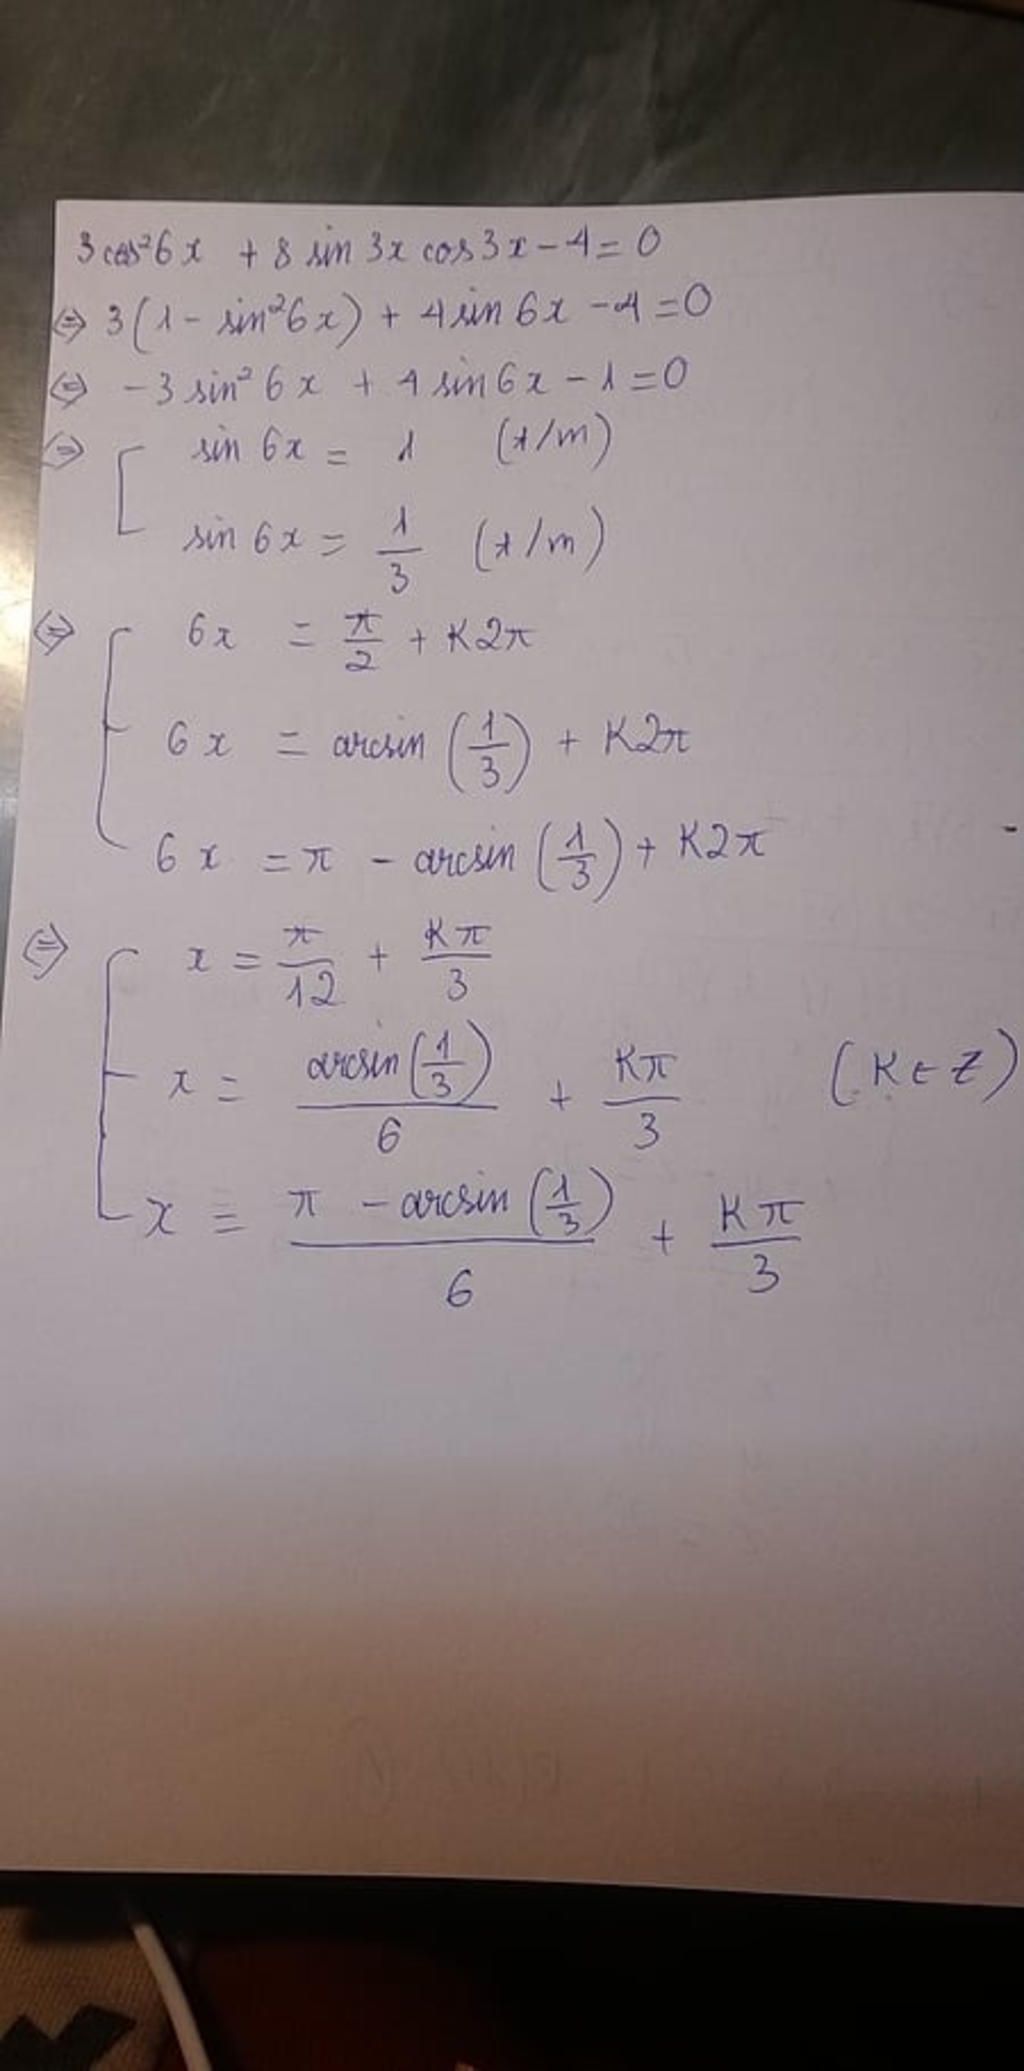 3cos²6x + 8 sin 3x cos 3x - 4 = 0
⇔ 3(1 - sin²6x) + 4 sin 6x - 4 = 0
⇔ -3 sin² 6x + 4 sin 6x - 1 = 0
⇔ [ sin 6x = 1 (t/m)
sin 6x = 1/3 (t/m)
⇔ [ 6x = π/2 + K2π
6x = arcsin (1/3) + K2π
6x = π - arcsin (1/3) + K2π
⇔ [ x = π/12 + Kπ/3
x = arcsin(1/3)/6 + Kπ/3 (K ∈ Z)
x = (π - arcsin (1/3))/6 + Kπ/3